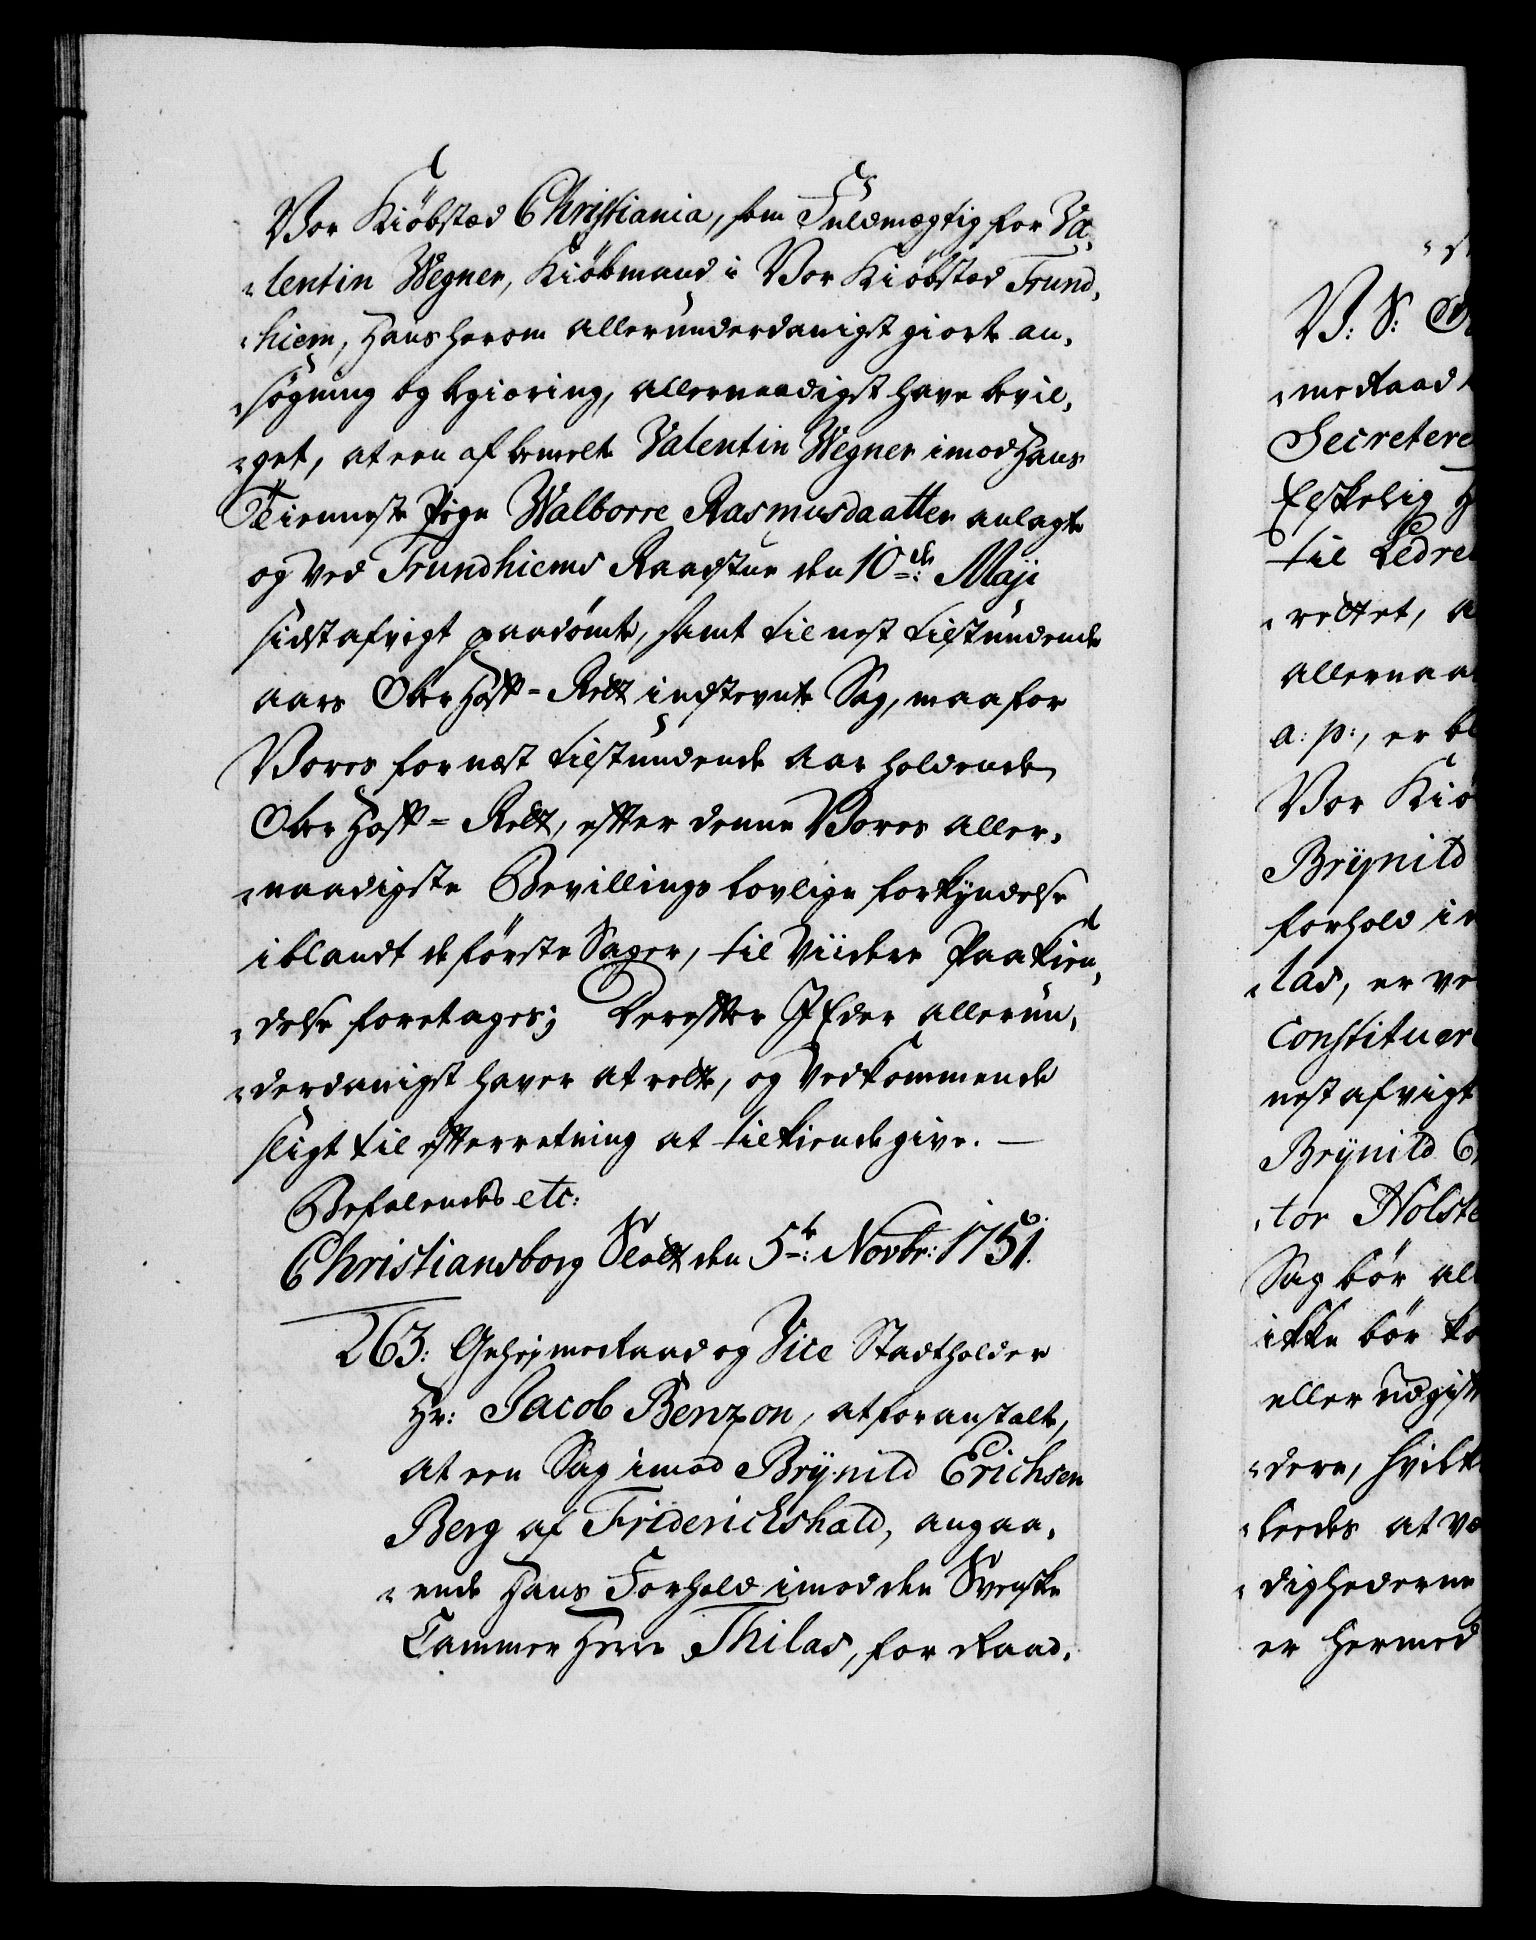 Vor Kiöbstæd Christiania, som Fuldmægtig for Va,
„lentin Wegner, Kiöbmand i Vor Kiöbstæd Trund,
„hiem, Hans herom allerunderdanigst giorte an,
„søgning og begiæring, allernaadigst have bevil,
„get, at een af bemelte Valentin Wegner imod Hans
Tienneste Pige Walborre Rasmusdaatter anlagte
og ved Trundhiems Raadstue den 10de: Maji
sidstafvigt paadömte, samt til nest tilstundende
aars Ober Hoff-Rett indstevnte Sag, maa for
Vores for næst tilstundende Aar holdende
Ober Hoff-Rett, efter denne Vores aller,
„naadigste Bevillings lovlige forkyndelse
iblandt de förste Sager, til Viidere Paakien,
„delse foretages; Derefter I Eder allerun,
„derdanigst haver at rette, og Vedkommende
sligt til efterretning at tilkiendegive. —
Befalendes etc:
Christiansborg Slott den 5te: Novbr: 1751.
263: Gehejmeraad og Vice Stadtholder
Hr: Jacob Benzon, at foranstalte,
at een Sag imod Brÿnild Erichsen
Berg af Friderichshald, angaa,
„ende Hans Forhold imod den Svenske
Cammer Herre Thilas, for Raad,
V: S: G
„meRaad
Secretere
Elskelig H
til Ledre
„rettet, a
allernaa
a: p:, er bl
Vor Kiö
Brÿnild
forhold i
„las, er ve
Constituer
nest afvigt
Brÿnild E
„tor Holste
Sag bör al
ikke bör ko
eller udgift
„dere, hvilke
leedes at væ
„dighederne
er hermed